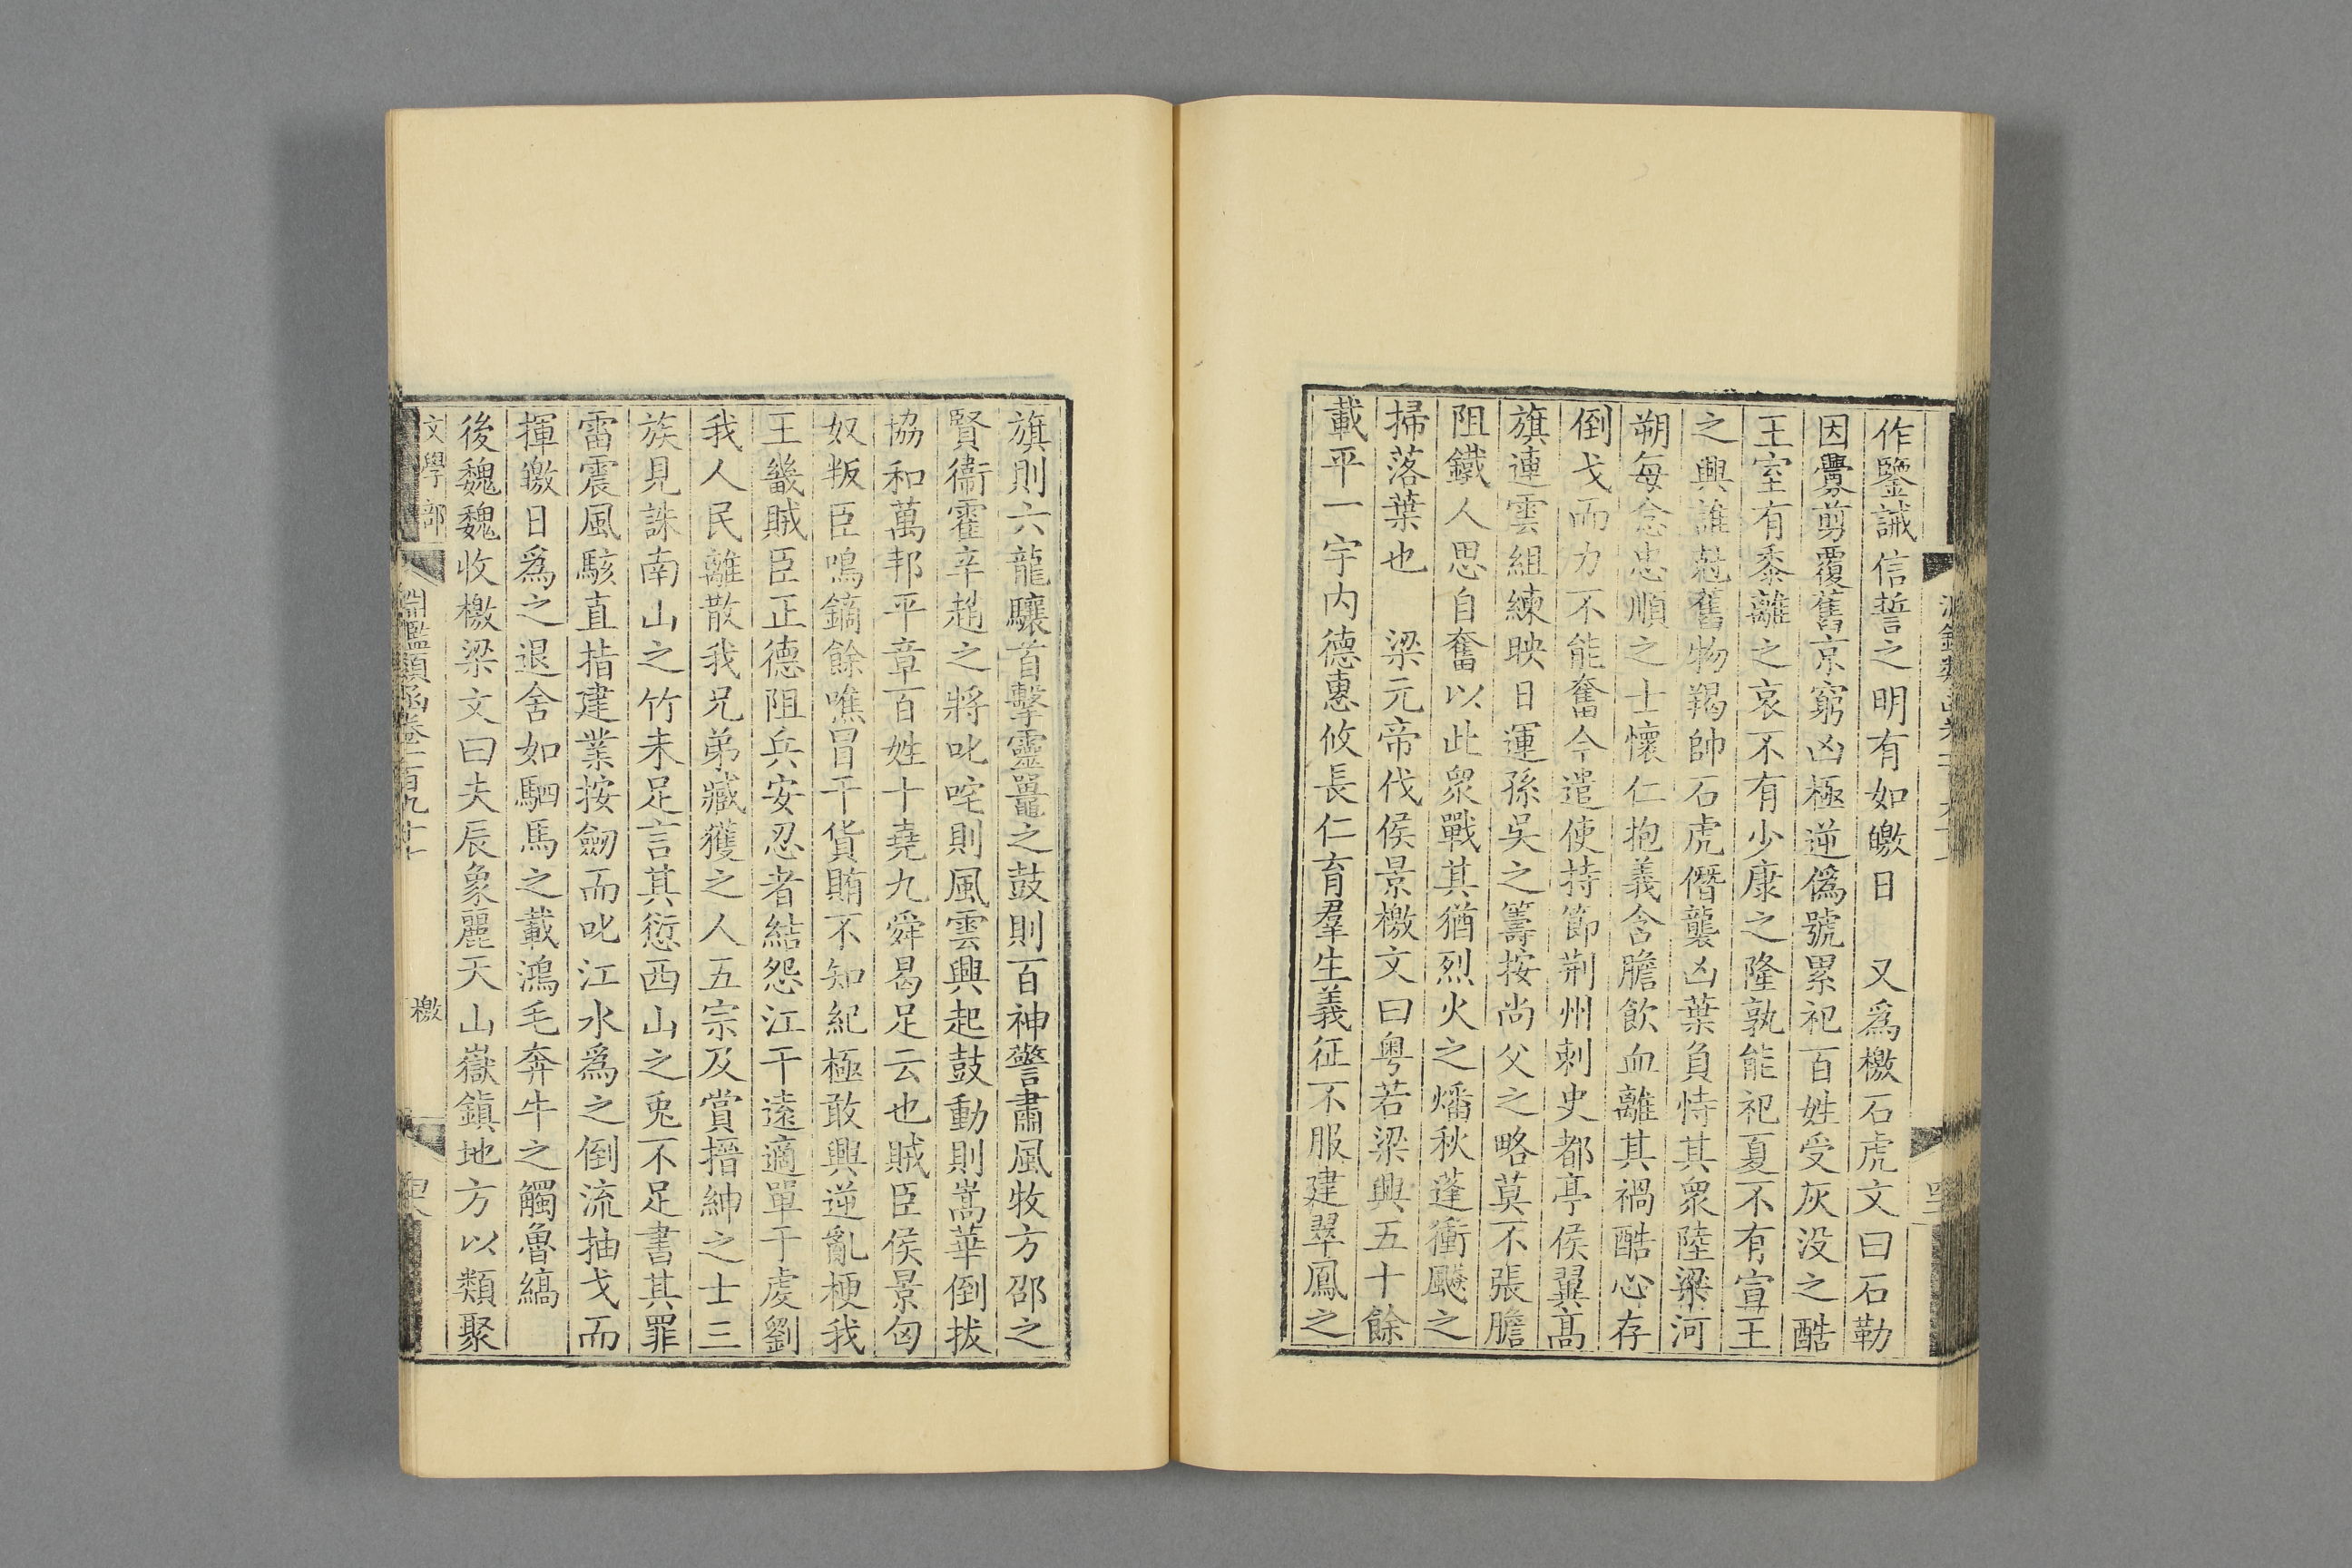 作鑒誡信誓之明有如皦日 又爲檄石虎文曰石勒
因釁剪覆舊京窮凶極逆僞號累祀百姓受灰没之酷
王室有黍離之哀不有少康之隆孰能祀夏不有宣王
之興誰尅舊物羯帥石虎僭襲凶葉負恃其衆陸梁河
朔每念忠順之士懷仁抱義含膽飲血離其禍酷心存
倒戈而力不能奮今遣使持節荆州刺史都亭侯翼髙
旗連雲組練映日運孫吳之籌按尚父之略莫不張膽
阻鐵人思自奮以此衆戰其猶烈火之燔秋蓬衝飈之
掃落葉也 梁元帝伐侯景檄文曰粤若梁興五十餘
載平一宇内德惠攸長仁育羣生義征不服建翠鳳之
旗則六龍驤首擊靈鼉之鼓則百神警肅風牧方邵之
賢衞霍辛趙之將叱咤則風雲興起鼓動則嵩華倒拔
協和萬邦平章百姓十堯九舜曷足云也賊臣侯景匈
奴叛臣鳴鏑餘噍冒干貨賄不知紀極敢興逆亂梗我
王畿賊臣正德阻兵安忍者結怨江干遠適單于虔劉
我人民離散我兄弟臧獲之人五宗及賞搢紳之士三
族見誅南山之竹未足言其愆西山之兎不足書其罪
雷震風駭直指建業按劒而叱江水爲之倒流抽戈而
揮皦日爲之退舍如駟馬之載鴻毛奔牛之觸魯縞
後魏魏收檄梁文曰夫辰象麗天山嶽鎮地方以類聚
文學部
淵鑑類函卷二百九十七
檄